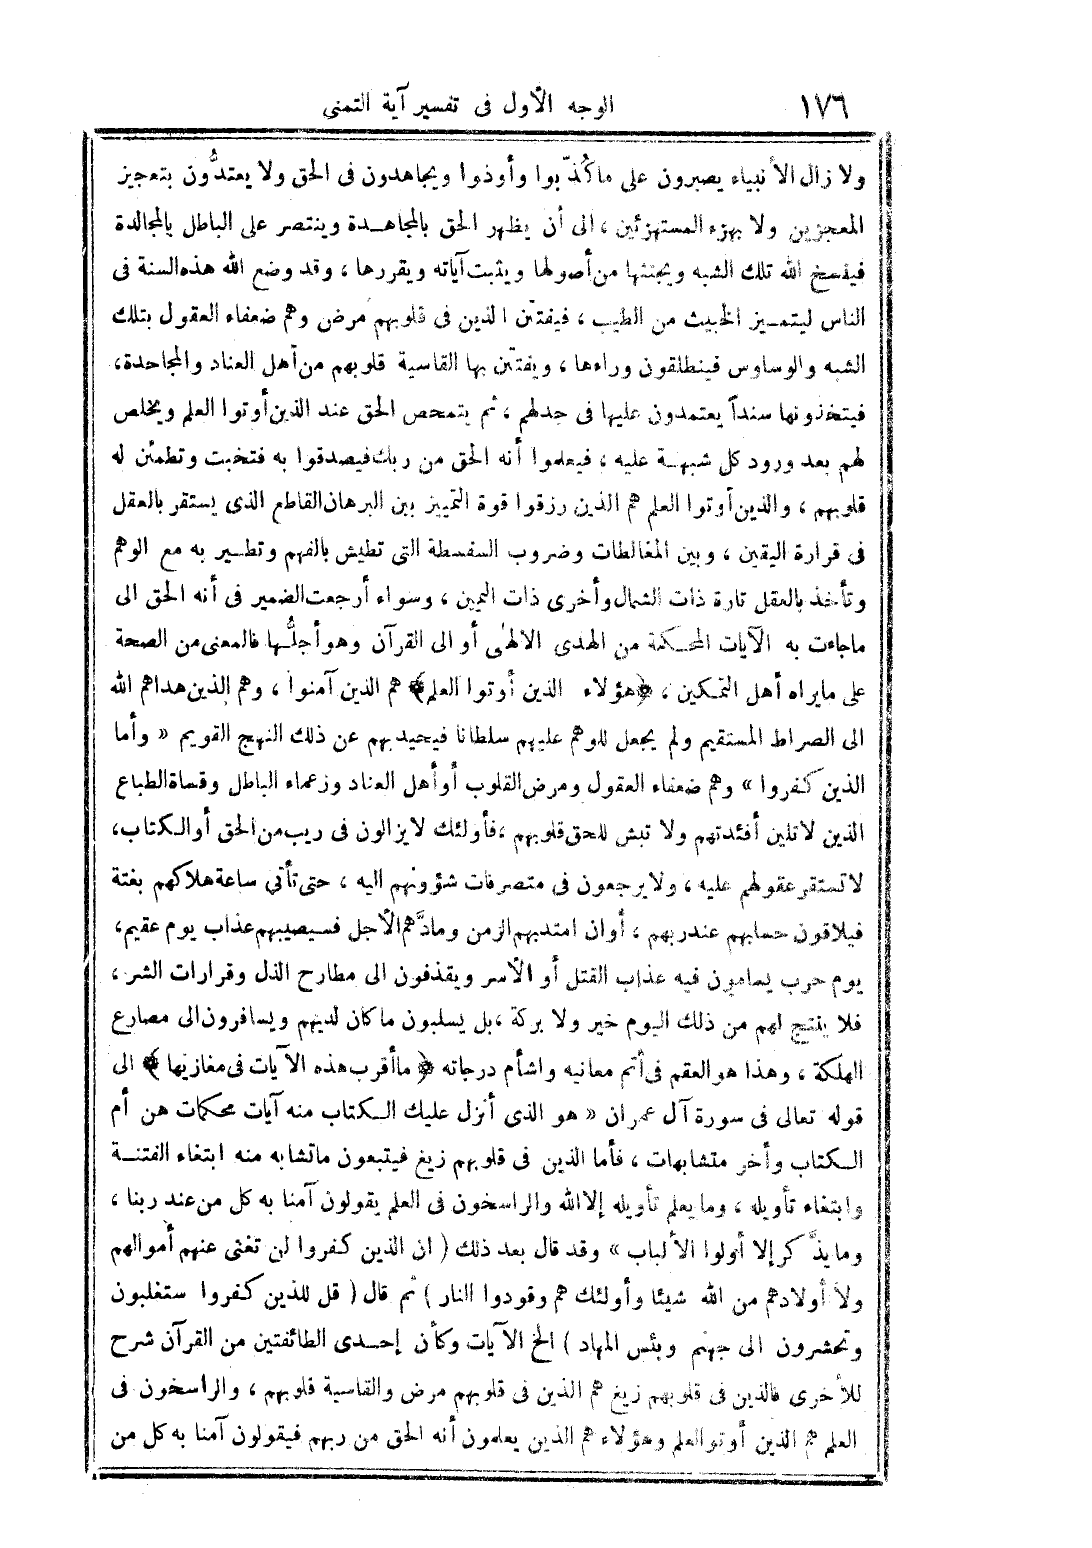 ١٧٦ الوجه الأول فى تفسير آية التمنى
ولا زال الأنبياء يصبرون على ما كُذّبوا وأوذوا ويجاهدون فى الحق ولا يعتدُّون بتعجيز
المعجزين ولا بهزء المستهزئين ، الى أن يظهر الحق بالمجاهدة وينتصر على الباطل بالمجالدة
فينسخ الله تلك الشبه ويجتثها من أصولها ويثبت آياته ويقررها ، وقد وضع الله هذه السنة فى
الناس ليتميز الخبيث من الطيب ، فيفتتن الذين فى قلوبهم مرض وهم ضعفاء العقول بتلك
الشبه والوساوس فينطلقون وراءها ، ويفتتن بها القاسية قلوبهم من أهل العناد والمجاحدة،
فيتخذونها سنداً يعتمدون عليها فى جدلهم ، ثم يتمحص الحق عند الذين أوتوا العلم ويخلص
لهم بعد ورود كل شبهة عليه ، فيعلموا أنه الحق من ربك فيصدقوا به فتخبت وتطمئن له
قلوبهم ، والذين أوتوا العلم هم الذين رزقوا قوة التمييز بين البرهان القاطع الذى يستقر بالعقل
فى قرارة اليقين ، وبين المغالطات وضروب السفسطة التى تطيش بالفهم وتطير به مع الوهم
وتأخذ بالعقل تارة ذات الشمال وأخرى ذات اليمين ، وسواء أرجعت الضمير فى أنه الحق الى
ماجاءت به الآيات المحكمة من الهدى الالهى أو الى القرآن وهو أجلُّها فالمعنى من الصحة
على مايراه أهل التمكين ، ﴿هؤلاء الذين أوتوا العلم﴾ هم الذين آمنوا ، وهم الذين هداهم الله
الى الصراط المستقيم ولم يجعل للوهم عليهم سلطانا فيحيد بهم عن ذلك النهج القويم « وأما
الذين كفروا » وهم ضعفاء العقول ومرض القلوب أو أهل العناد وزعماء الباطل وقساة الطباع
الذين لا تلين أفئدتهم ولا تبش للحق قلوبهم ،فأولئك لا يزالون فى ريب من الحق أو الكتاب،
لا تستقر عقولهم عليه ، ولا يرجعون فى متصرفات شؤونهم اليه ، حتى تأتى ساعة هلاكهم بغتة
فيلاقون حسابهم عند ربهم ، أو ان امتد بهم الزمن ومادَّهم الأجل فسيصيبهم عذاب يوم عقيم،
يوم حرب يسامون فيه عذاب القتل أو الأسر ويقذفون الى مطارح الذل وقرارات الشر ،
فلا ينتج لهم من ذلك اليوم خير ولا بركة ،بل يسلبون ما كان لديهم ويسافرون الى مصارع
الهلكة ، وهذا هو العقم فى أتم معانيه واشأم درجاته ﴿ ما أقرب هذه الآيات فى مغازيها ﴾ الى
قوله تعالى فى سورة آل عمران « هو الذى أنزل عليك الكتاب منه آيات محكمات هن أم
الكتاب وأخر متشابهات ، فأما الذين فى قلوبهم زيغ فيتبعون ماتشابه منه ابتغاء الفتنة
وابتغاء تأويله ، وما يعلم تأويله إلا الله والراسخون فى العلم يقولون آمنا به كل من عند ربنا ،
وما يذَّكر إلا أولوا الألباب » وقد قال بعد ذلك ( ان الذين كفروا لن تغنى عنهم أموالهم
ولا أولادهم من الله شيئا وأولئك هم وقودوا النار ) ثم قال ( قل للذين كفروا ستغلبون
وتحشرون الى جهنم وبئس المهاد ) الخ الآيات وكأن إحدى الطائفتين من القرآن شرح
للأخرى فالذين فى قلوبهم زيغ هم الذين فى قلوبهم مرض والقاسية قلوبهم ، والراسخون فى
العلم هم الذين أوتو العلم وهؤلاء هم الذين يعلمون أنه الحق من ربهم فيقولون آمنا به كل من